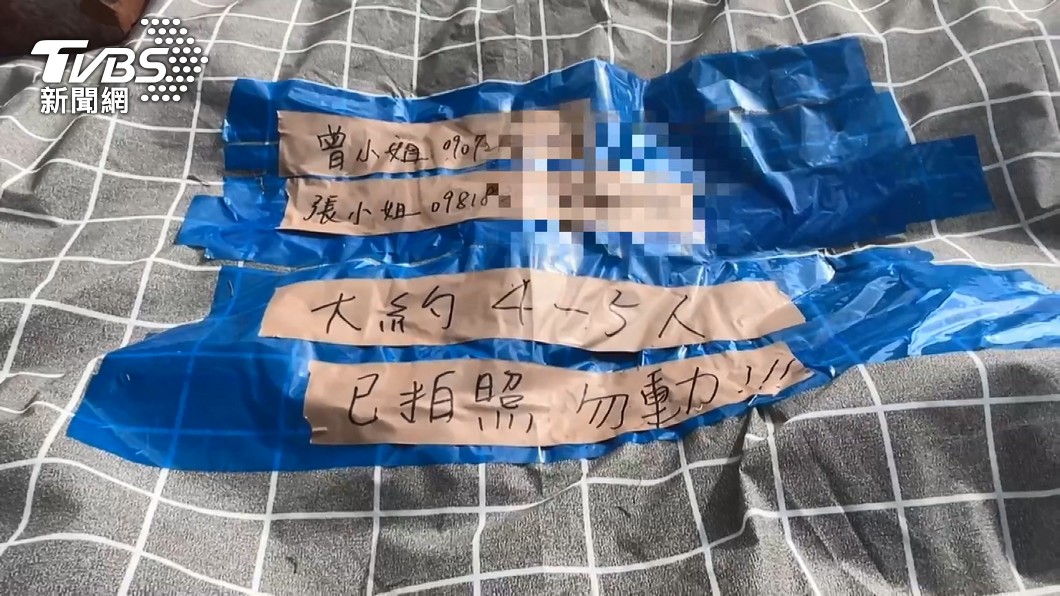 TVBS
新聞網
曾小姐 0907
張小姐 09818
大約 4-5人
已拍照 勿動!!!